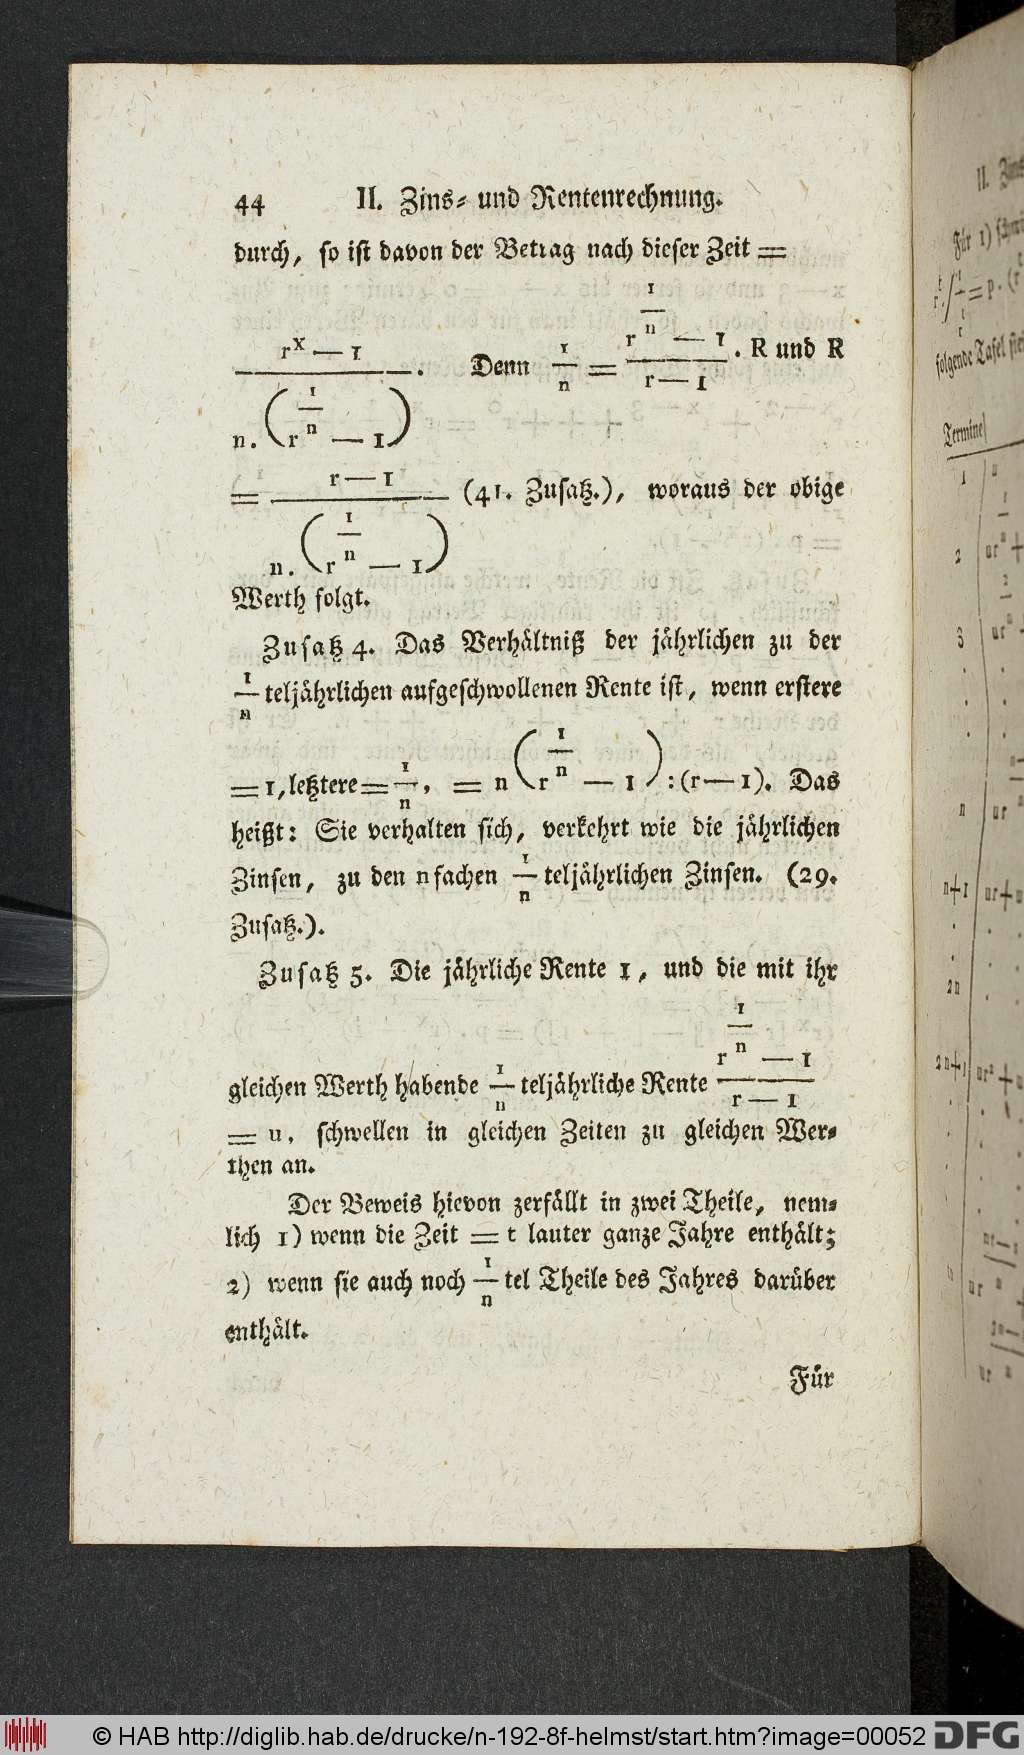 44 II. Zins- und Rentenrechnung.
durch, so ist davon der Betrag nach dieser Zeit =
(r^x — 1)/(n. (r^(1/n) — 1)). Denn 1/n = (r^(1/n) — 1)/(r — 1). R und R
= (r — 1)/(n. (r^(1/n) — 1)) (41. Zusatz.), woraus der obige
Werth folgt.
Zusatz 4. Das Verhältniß der jährlichen zu der
1/n teljährlichen aufgeschwollenen Rente ist, wenn erstere
= 1, letztere = 1/n, = n (r^(1/n) — 1) : (r — 1). Das
heißt: Sie verhalten sich, verkehrt wie die jährlichen
Zinsen, zu den n fachen 1/n teljährlichen Zinsen. (29.
Zusatz.).
Zusatz 5. Die jährliche Rente 1, und die mit ihr
gleichen Werth habende 1/n teljährliche Rente (r^(1/n) — 1)/(r — 1)
= u, schwellen in gleichen Zeiten zu gleichen Wer-
then an.
Der Beweis hievon zerfällt in zwei Theile, nem-
lich 1) wenn die Zeit = t lauter ganze Jahre enthält;
2) wenn sie auch noch 1/n tel Theile des Jahres darüber
enthält.
Für
II. Zins
Für 1)
folgende Tafel
Termine
1
2
3
n
n+1
2n
2n+1
© HAB http://diglib.hab.de/drucke/n-192-8f-helmst/start.htm?image=00052 DFG